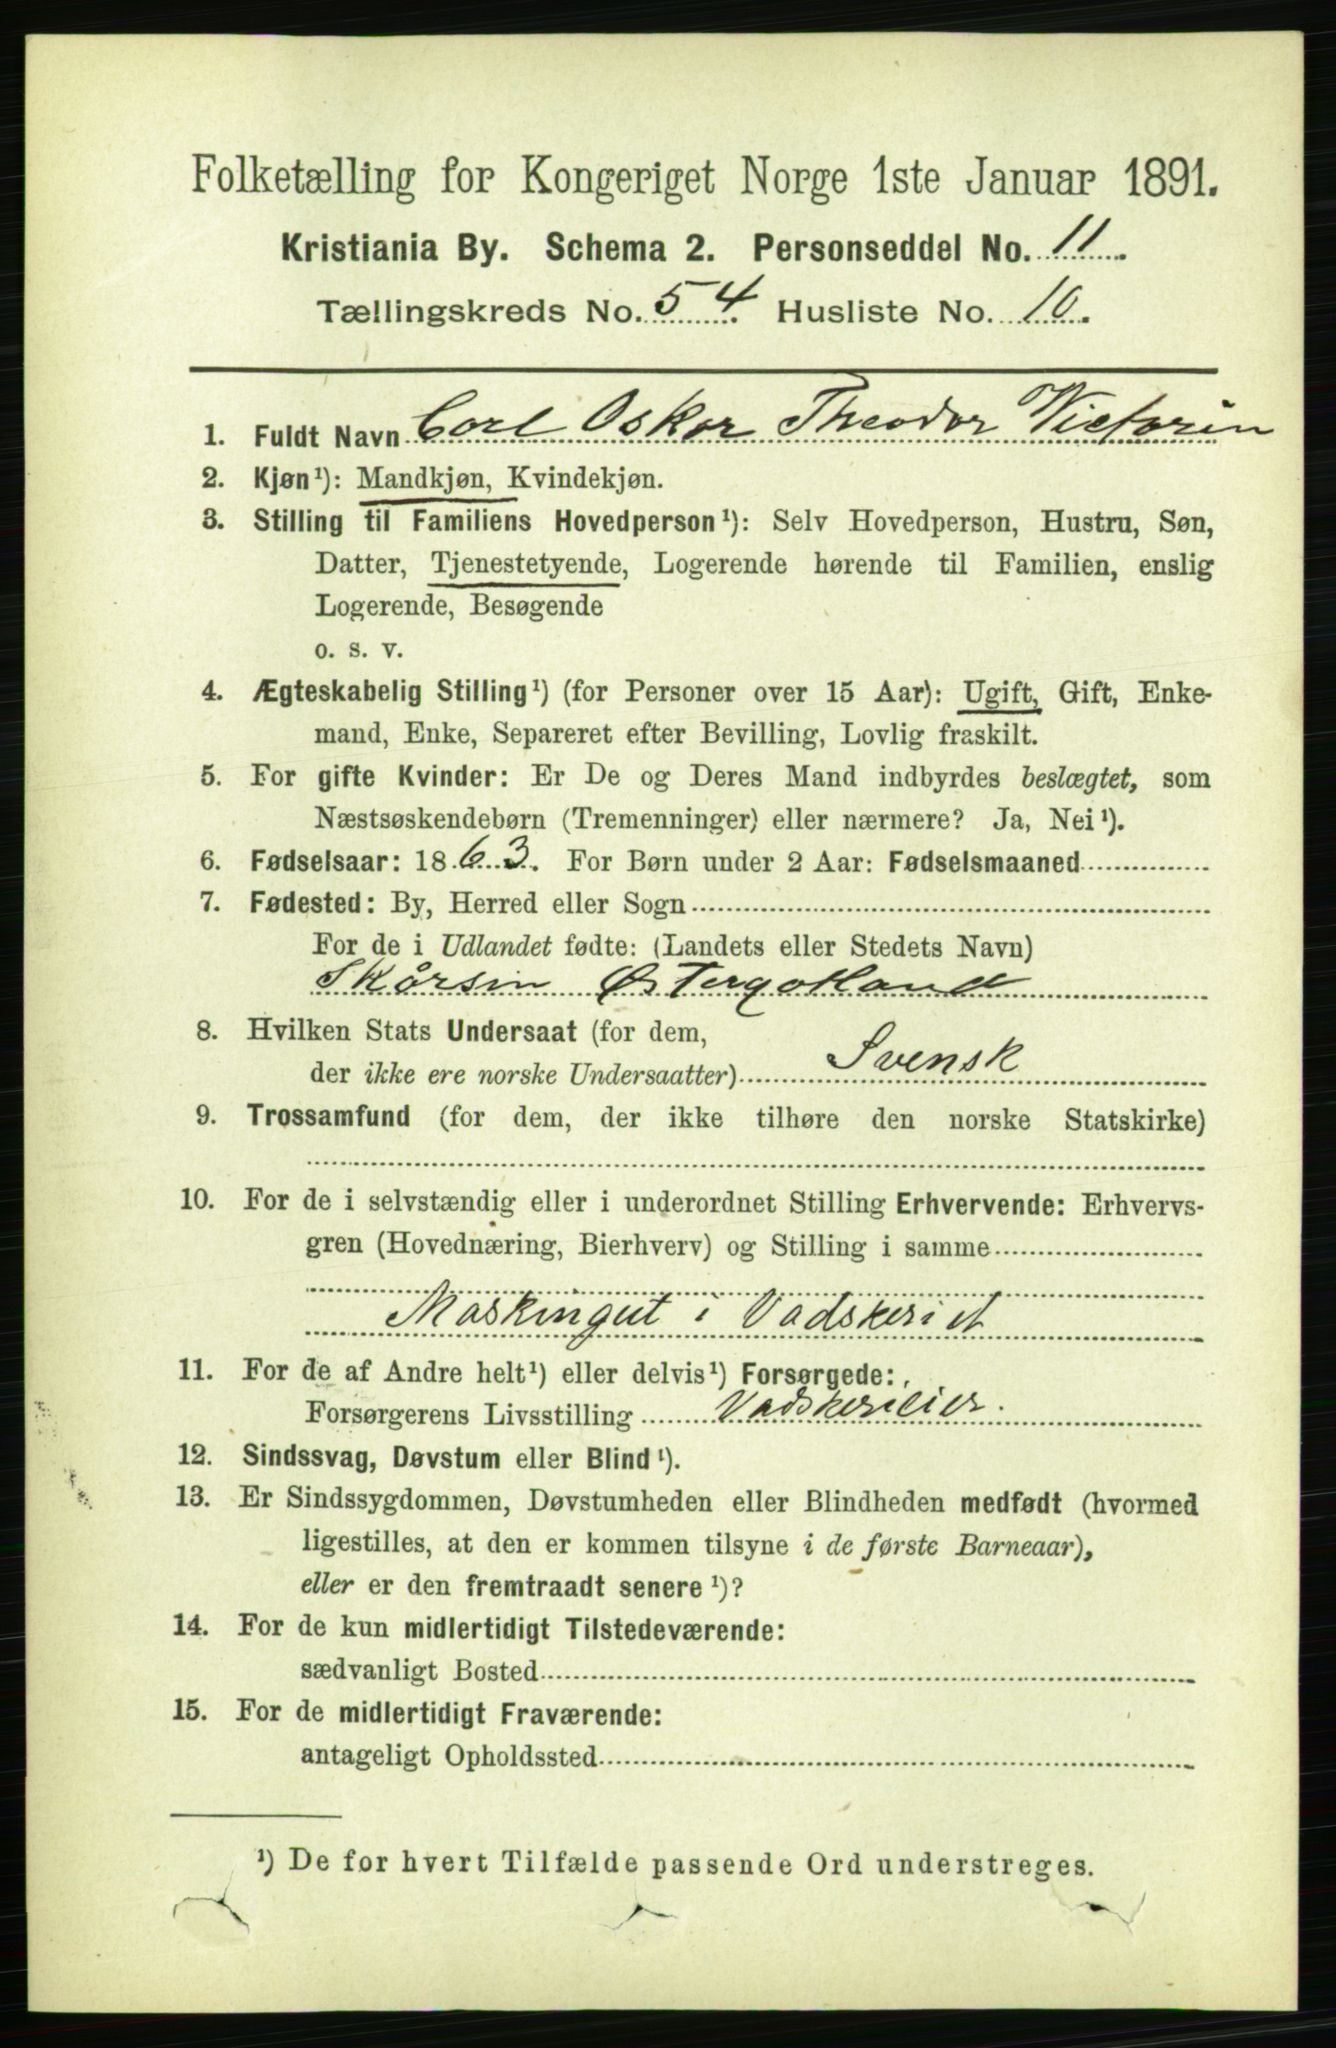 Folketælling for Kongeriget Norge 1ste Januar 1891.
Kristiania By. Schema 2. Personseddel No. 11.
Tællingskreds No. 54. Husliste No. 10.
1. Fuldt Navn Carl Oskar Theodor Victorin
2. Kjøn¹): Mandkjøn, Kvindekjøn.
3. Stilling til Familiens Hovedperson¹): Selv Hovedperson, Hustru, Søn,
Datter, Tjenestetyende, Logerende hørende til Familien, enslig
Logerende, Besøgende
o. s. v.
4. Ægteskabelig Stilling¹) (for Personer over 15 Aar): Ugift, Gift, Enke-
mand, Enke, Separeret efter Bevilling, Lovlig fraskilt.
5. For gifte Kvinder: Er De og Deres Mand indbyrdes beslægtet, som
Næstsøskendebørn (Tremenninger) eller nærmere? Ja, Nei¹).
6. Fødselsaar: 1863. For Børn under 2 Aar: Fødselsmaaned
7. Fødested: By, Herred eller Sogn
For de i Udlandet fødte: (Landets eller Stedets Navn)
Skårsin Østergotland
8. Hvilken Stats Undersaat (for dem,
der ikke ere norske Undersaatter) Svensk
9. Trossamfund (for dem, der ikke tilhøre den norske Statskirke)
10. For de i selvstændig eller i underordnet Stilling Erhvervende: Erhvervs-
gren (Hovednæring, Bierhverv) og Stilling i samme
Maskingut i Vadskeriet
11. For de af Andre helt¹) eller delvis¹) Forsørgede:
Forsørgerens Livsstilling Vadskerieier.
12. Sindssvag, Døvstum eller Blind¹).
13. Er Sindssygdommen, Døvstumheden eller Blindheden medfødt (hvormed
ligestilles, at den er kommen tilsyne i de første Barneaar),
eller er den fremtraadt senere¹)?
14. For de kun midlertidigt Tilstedeværende:
sædvanligt Bosted
15. For de midlertidigt Fraværende:
antageligt Opholdssted
¹) De for hvert Tilfælde passende Ord understreges.